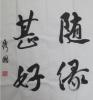 随缘
甚好